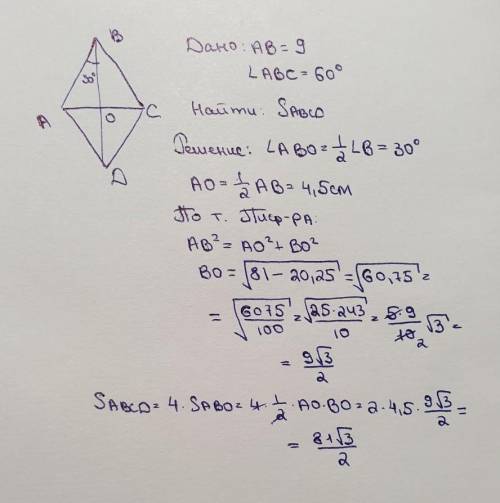 B
30°
A
O
C
D
Дано: AB = 9
∠ABC = 60°
Найти: SABCD
Решение: ∠ABO = 1/2 ∠B = 30°
AO = 1/2 AB = 4,5 см
По т. Пиф-ра:
AB² = AO² + BO²
BO = √(81 − 20,25) = √(60,75) =
= √(6075/100) = √(25·243)/10 = 5·9/10 2 √3 =
= 9√3/2
SABCD = 4 · SABO = 4 · 1/2 · AO · BO = 2 · 4,5 · 9√3/2 =
= 81√3/2